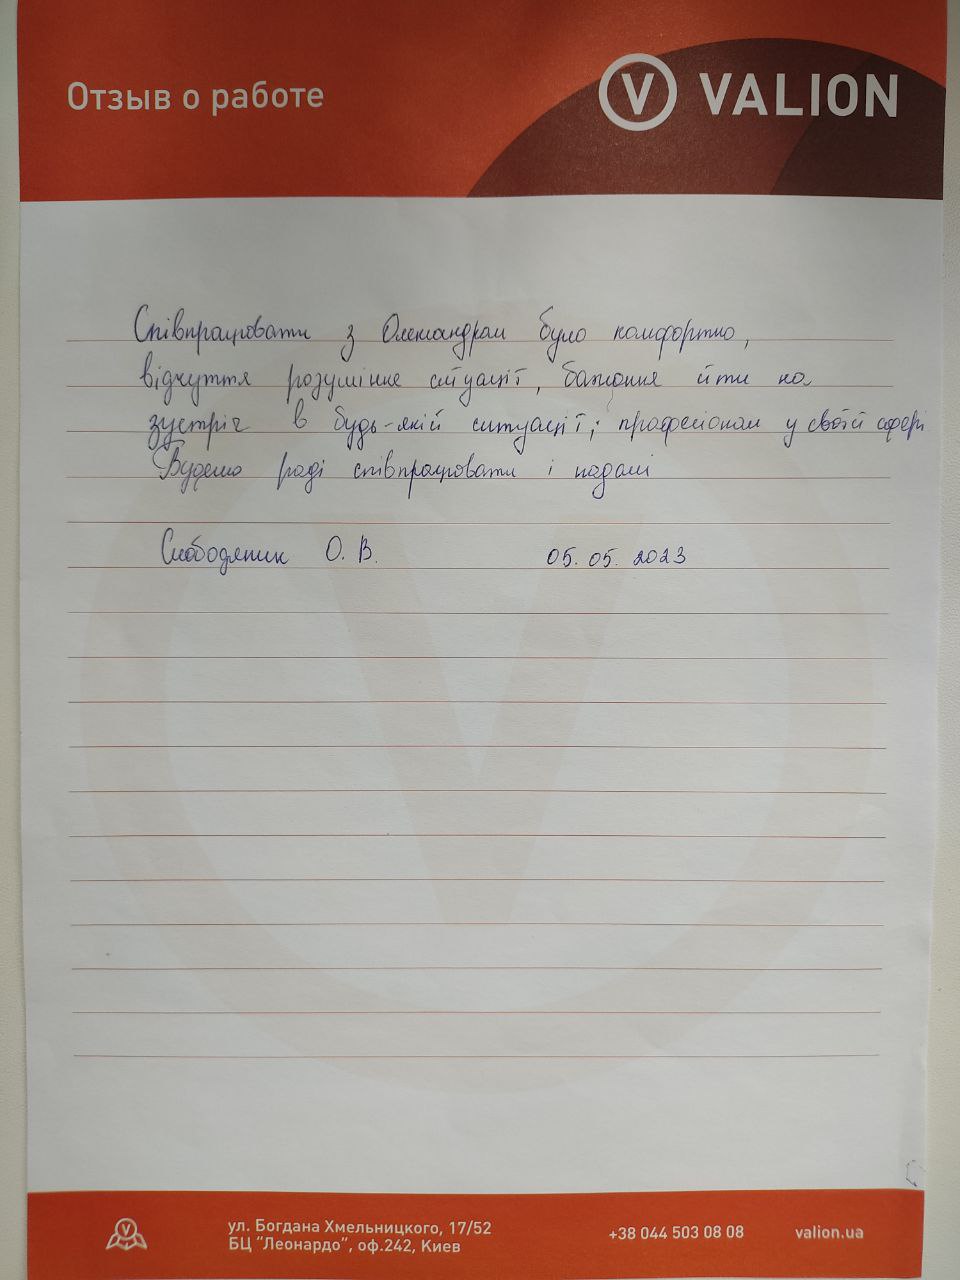 Отзыв о работе
VALION
Співпрацювати з Олександром було комфортно,
відчуття розуміння ситуації, бажання йти на
зустріч в будь-якій ситуації; професіонал у своїй сфері
Будемо раді співпрацювати і надалі
Слободяник О. В. 05.05.2023
ул. Богдана Хмельницкого, 17/52
БЦ "Леонардо", оф.242, Киев
+38 044 503 08 08
valion.ua